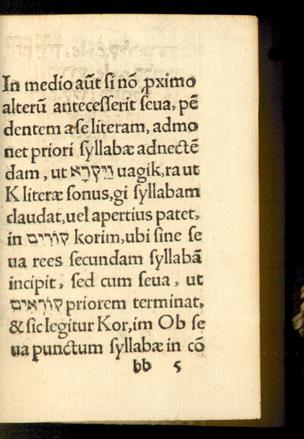 In medio aūt si nō ꝓximo
alterū antecesserit seua, pē
dentem a se literam, admo
net priori syllabæ adnectē
dam, ut וַיִּקְרָא uagik, ra ut
K literæ sonus, gi syllabam
claudat, uel apertius patet,
in קוֹרִים korim, ubi sine se
ua rees secundam syllabā
incipit, sed cum seua, ut
קוֹרְאִים priorem terminat,
& sic legitur Kor, im Ob se
ua punctum syllabæ in cō
bb 5